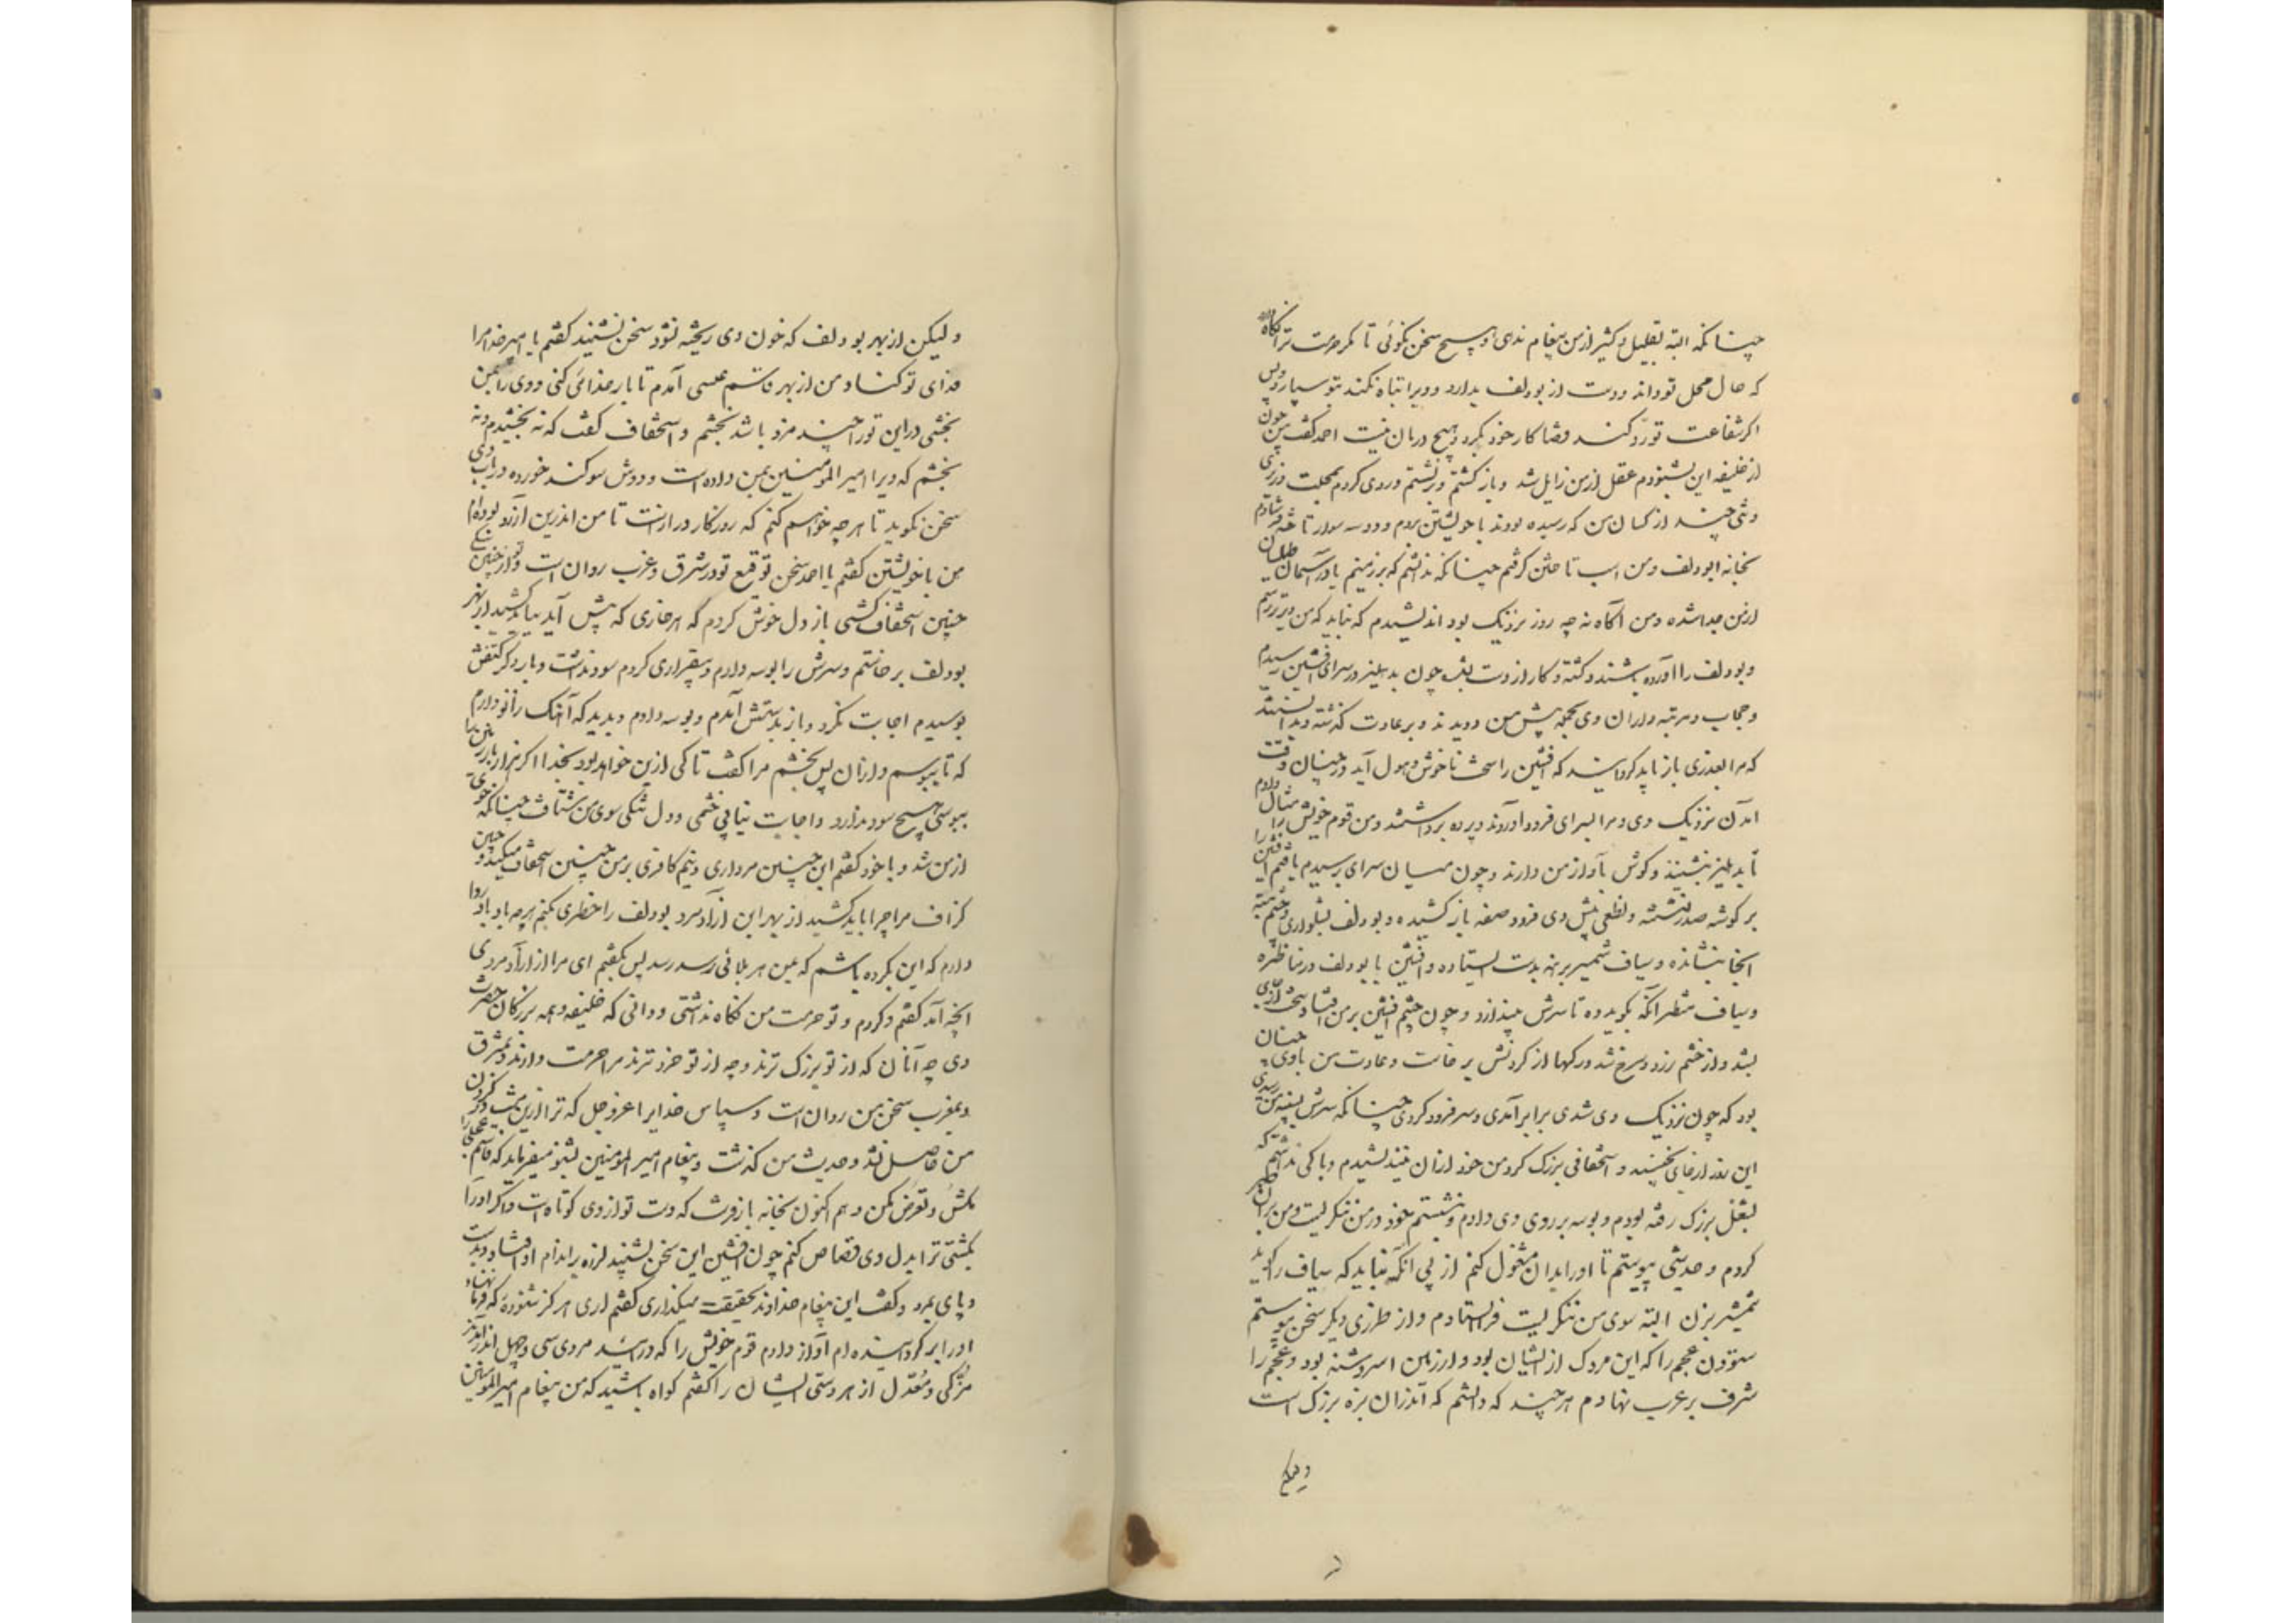 چنانکه البته بقلیل و کثیر از من پیغام ندهی و هیچ سخن نگوئی تا مگر حرمت ترا نگاه
که حال و محل تو داند و دست از بودلف بدارد و ویرا تباه نکند و بتو سپارد و پس
اگر شفاعت تو رد کند قضا کار خود بکرد و هیچ درمان نیست احمد گفت من چون
از خلیفه این بشنودم عقل از من زایل شد و بازگشتم و برنشستم و روی کردم بمحلت وزیری
و تنی چند از کسان من که رسیده بودند با خویشتن بردم و دو سه سوار تاخته فرستادم
بخانه ابودلف و من اسب تاختن گرفتم چنانکه ندانستم که بر زمینم یا در آسمان طیلسان
از من جدا شده و من آگاه نه چه روز نزدیک بود اندیشیدم که نباید که من دیرتر رسم
و بودلف را آورده باشند و کشته و کار از دست بشده چون بدهلیز در سرای افشین رسیدم
و حجاب و مرتبه داران وی بجمله پیش من دویدند و بر عادت گذشته و ندانستند
که مرا بعذری باز باید گردانید که افشین را سخت ناخوش و هول آید در چنان وقت
آمدن نزدیک وی و مرا بسرای فرود آوردند و پرده برداشتند و من قوم خویش را مثال دادم
تا بدهلیز بنشینند و گوش بآواز من دارند و چون میان سرای برسیدم یافتم افشین را
بر گوشه صدر نشسته و نطعی پیش وی فرود صفه باز کشیده و بودلف بشلواری و چشم بسته
آنجا بنشانده و سیاف شمشیر برهنه بدست ایستاده و افشین با بودلف در مناظره
و سیاف منتظر آنکه بگوید ده تا سرش بیندازد و چون چشم افشین بر من افتاد سخت از جای
بشد و از خشم زرد و سرخ شد و رگها از گردنش برخاست و عادت من با وی چنان
بود که چون نزدیک وی شدی برابر آمدی و سر فرود کردی چنانکه سرش بسینه من رسیدی
این روز از جای نجنبید و استخفافی بزرگ کرد من خود از آن نیندیشیدم و باکی نداشتم که
بشغل بزرگ رفته بودم و بوسه بر روی وی دادم و بنشستم خود در من ننگریست و من بر آن صبر
کردم و حدیثی پیوستم تا او را بدان مشغول کنم از پی آنکه نباید که سیاف را گوید
شمشیر بزن البته سوی من ننگریست فرا ایستادم و از طرزی دیگر سخن پیوستم
ستودن عجم را که این مردک از ایشان بود و از زمین اسروشنه بود و عجم را
شرف بر عرب نهادم هر چند که دانستم که اندر آن بزه بزرگ است
ولیکن
ولیکن از بهر بودلف که خون وی ریخته نشود سخن نشنید گفتم یا امیر خدا مرا
فدای تو کناد و من از بهر قاسم عیسی آمدم تا بار خدائی کنی و وی را بمن
بخشی در این تو را چند مزد باشد بخشم و استخفاف گفت که نه بخشیدم و نه
بخشم که ویرا امیر المومنین بمن داده است و دوش سوگند خورده در باب وی
سخن نگوید تا هرچه خواهم کنم که روزگار درازست تا من اندرین آرزو بودم
من با خویشتن گفتم یا احمد سخن و توقیع تو در شرق و غرب روان است و تو از چنین سگی
چنین استخفاف کشی باز دل خوش کردم که هر خاری که پیش آید بباید کشید از بهر
بودلف برخاستم و سرش را بوسه دادم و بیقراری کردم سود نداشت و بار دیگر کتفش
بوسیدم اجابت نکرد و باز بدستش آمدم و بوسه دادم و بدید که آهنگ زانو دارم
که تا ببوسم و از آن پس بخشم مرا گفت تا کی ازین خواهد بود بخدا اگر هزار بار زمین را
ببوسی هیچ سود ندارد و اجابت نیابی خشمی و دل تنگی سوی من شتافت چنانکه خوی
از من شد و با خود گفتم این چنین مرداری و نیم کافری بر من چنین استخفاف میکند و چنین
گزاف مرا چرا باید کشید از بهر این آزاد مرد بودلف را خطری بکنم هرچه باد باد و روا
دارم که این بکرده باشم که بمن هر بلائی رسد رسد پس بگفتم ای مرا از آزاد مردی
آنچه آمد گفتم و کردم و تو حرمت من نگاه نداشتی و دانی که خلیفه و همه بزرگان حضرت
وی چه آنان که از تو بزرگ ترند و چه از تو خرد ترند مرا حرمت دارند و بمشرق
و بمغرب سخن من روان است و سپاس خدایرا عز و جل که ترا ازین منت در گردن
من حاصل نشد و حدیث من گذشت و پیغام امیر المومنین بشنو میفرماید که قاسم عجلی را
مکش و تعرض مکن و هم اکنون بخانه باز فرست که دست تو از وی کوتاه است و اگر او را
بکشتی ترا بدل وی قصاص کنم چون افشین این سخن بشنید لرزه بر اندام او افتاد و بدست
و پای بمرد و گفت این پیغام خداوند بحقیقت میگذاری گفتم آری هرگز شنوده که فرمانهاء
او را برگردانیده ام آواز دادم قوم خویش را که در آئید مردی سی و چهل اندر آمدند
مزکی و معدل از هر دستی ایشان را گفتم گواه باشید که من پیغام امیر المومنین